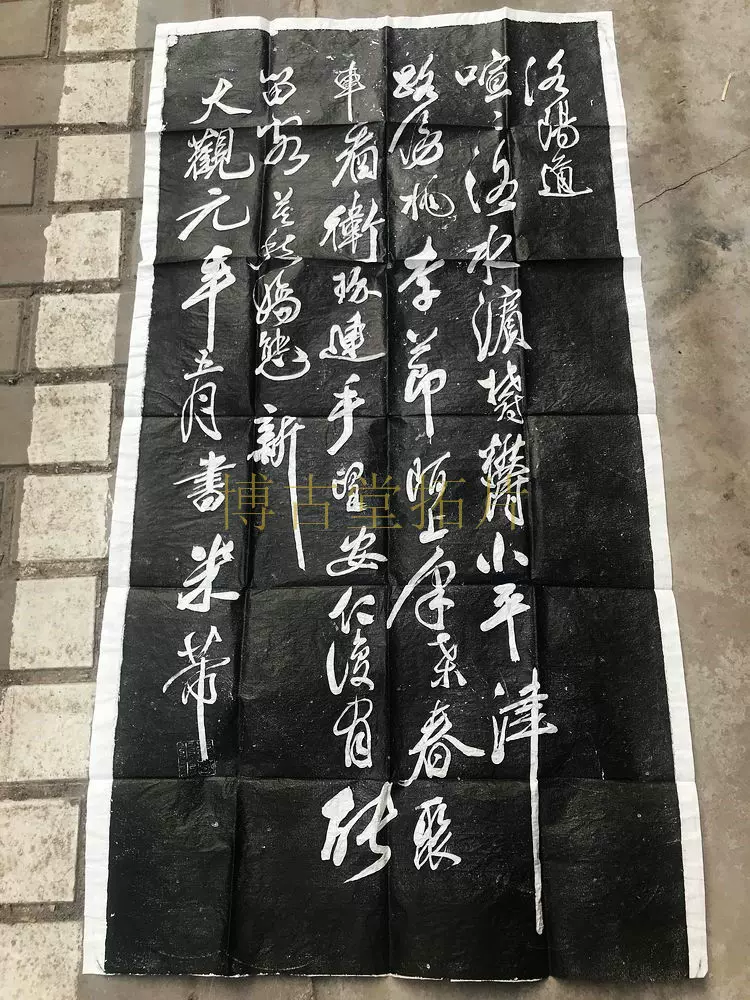 洛陽道
喧〻洛水濱欝欝小平津
路傍桃李節陌上采桑春聚
車看衛玠連手望安仁復有能
留客莫愁嬌態新
大觀元年五月書米芾
博古堂拓片